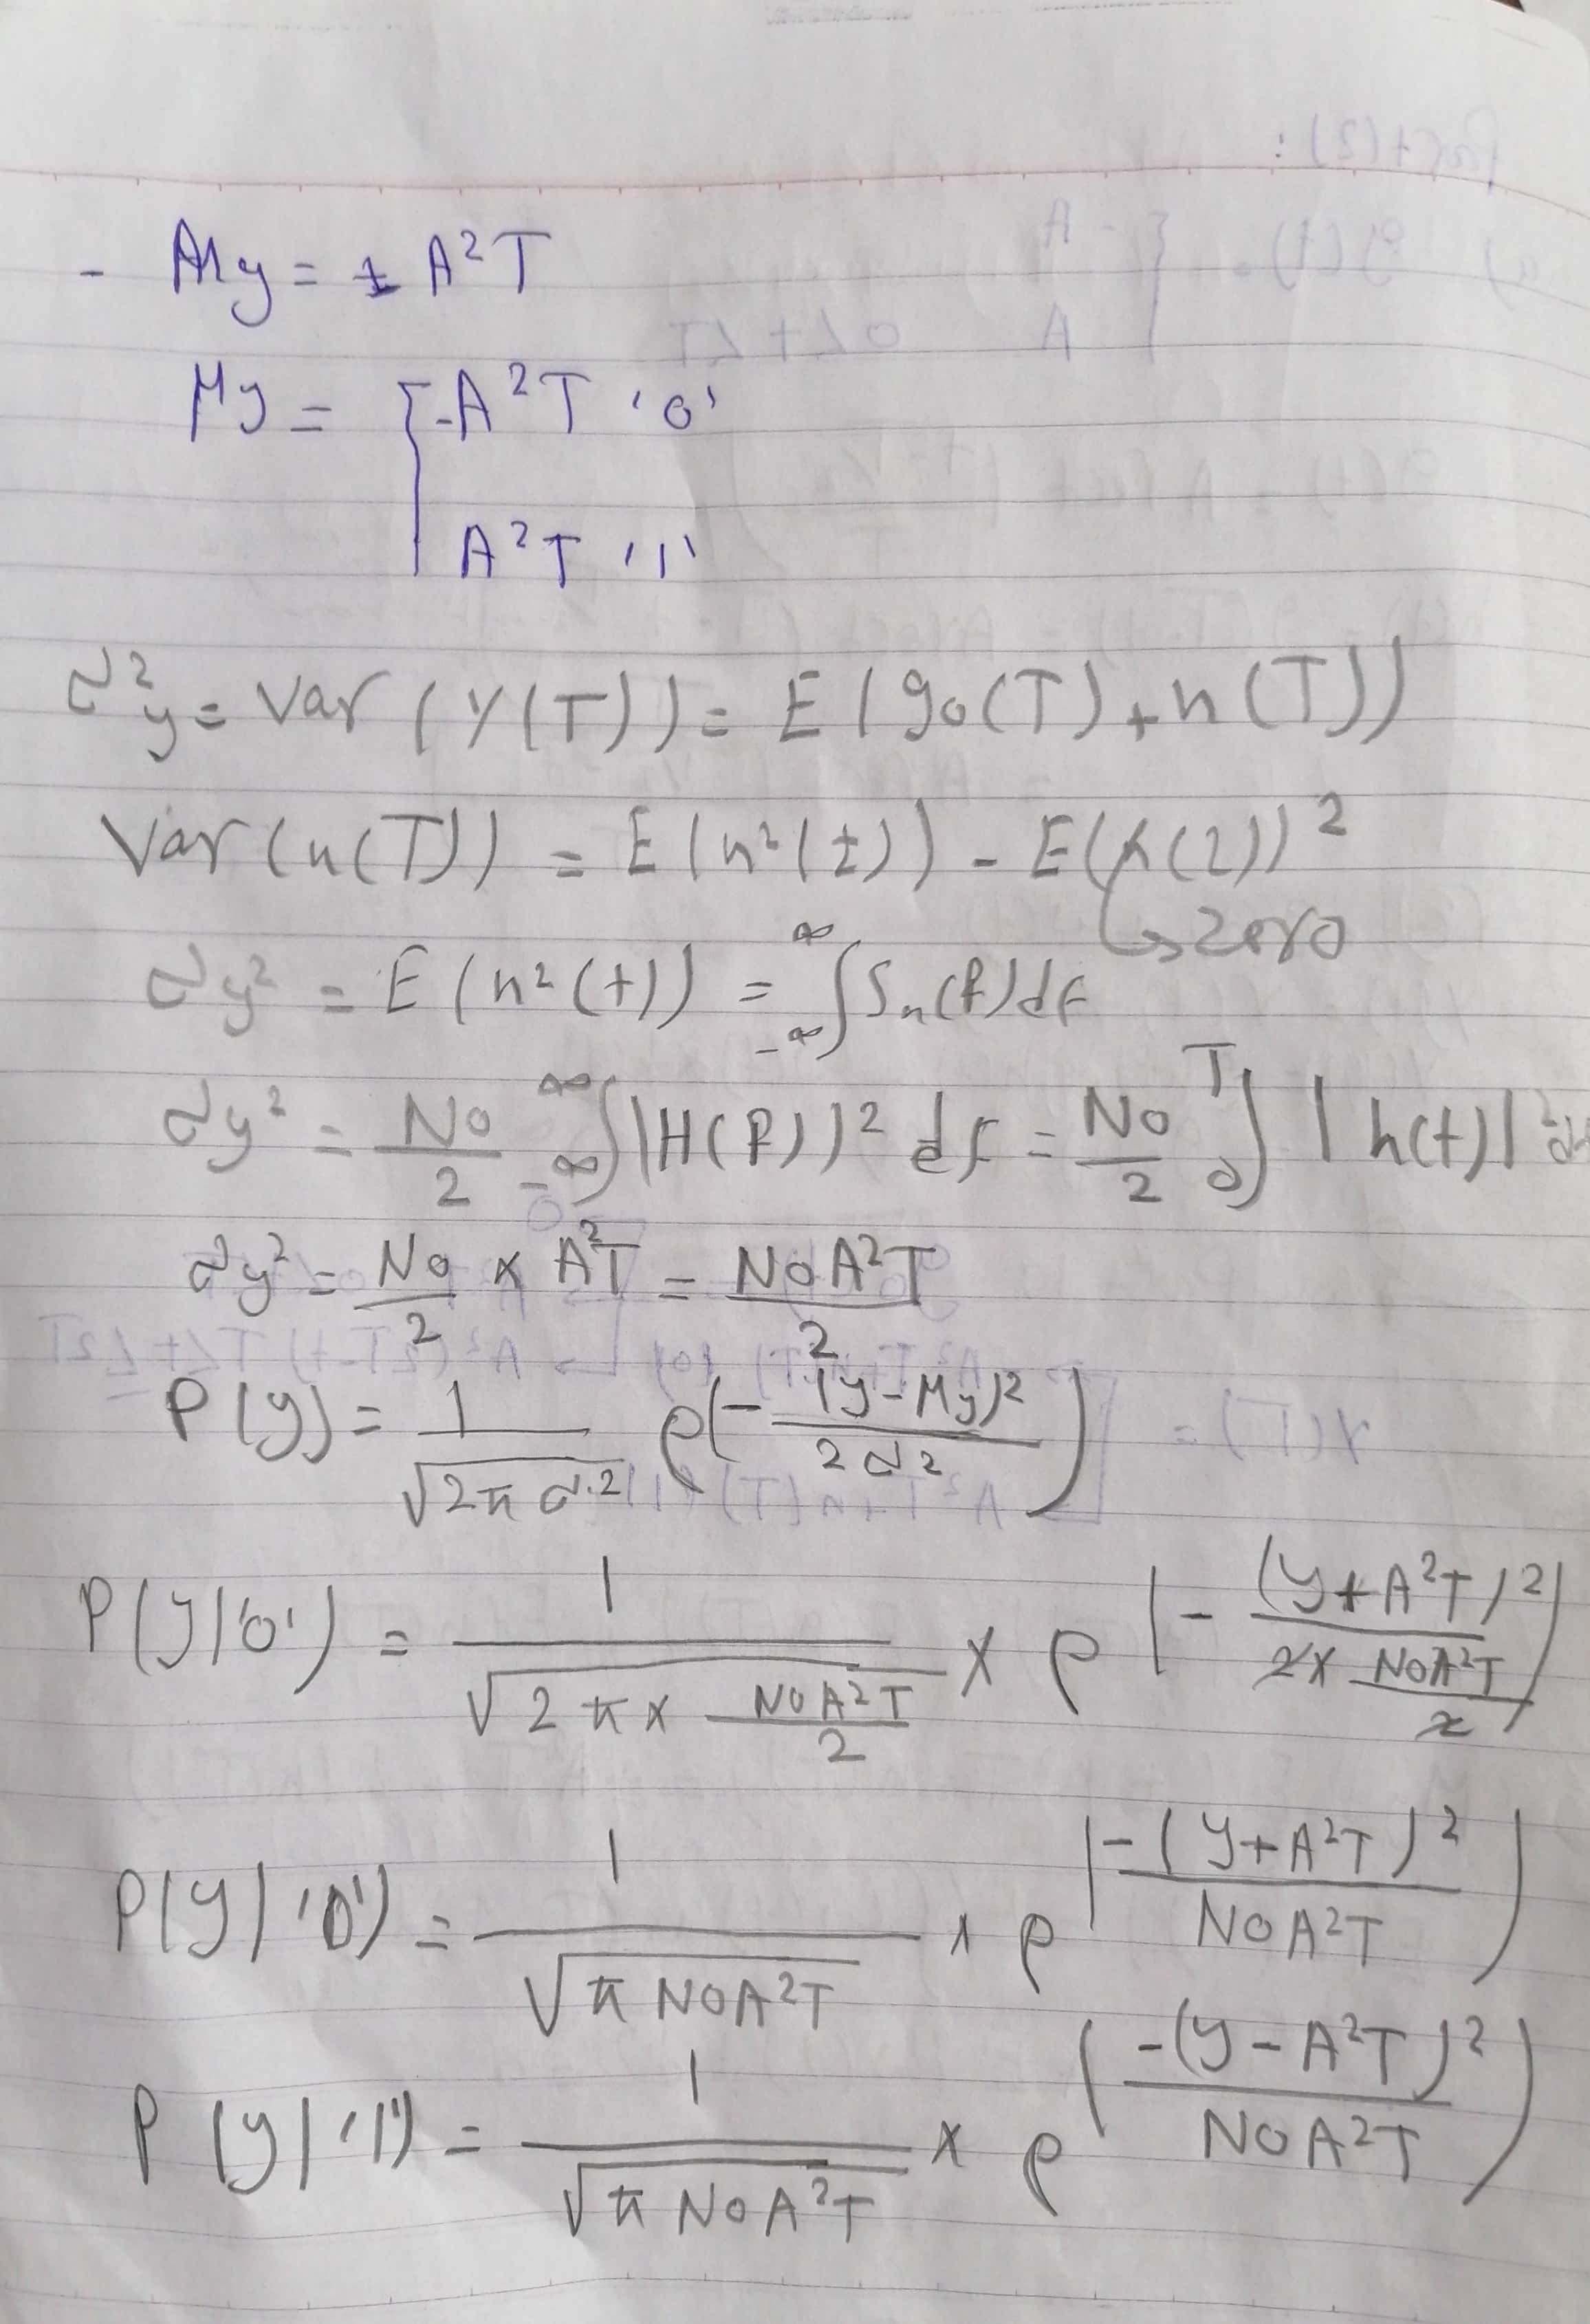 - My = ± A²T
My = { -A²T '0'
A²T '1'
σ²y = Var (Y(T)) = E (g₀(T) + n(T))
Var (n(T)) = E (n²(t)) - E(n(2))²
↳ zero
σy² = E (n²(t)) = ∞ ∫ -∞ Sn(f) df
σy² = No/2 ∞ ∫ -∞ |H(f)|² df = No/2 T ∫ 0 |h(t)|² dt
σy² = No/2 × A²T = NoA²T/2
P(y) = 1/√(2πσ²) e(- (y-My)²/2σ²)
P(y|'0') = 1/√(2π × NoA²T/2) × e(- (y+A²T)²/(2× NoA²T/2))
P(y|'0') = 1/√(π NoA²T) × e(-(y+A²T)²/NoA²T)
P(y|'1') = 1/√(π NoA²T) × e(-(y-A²T)²/NoA²T)